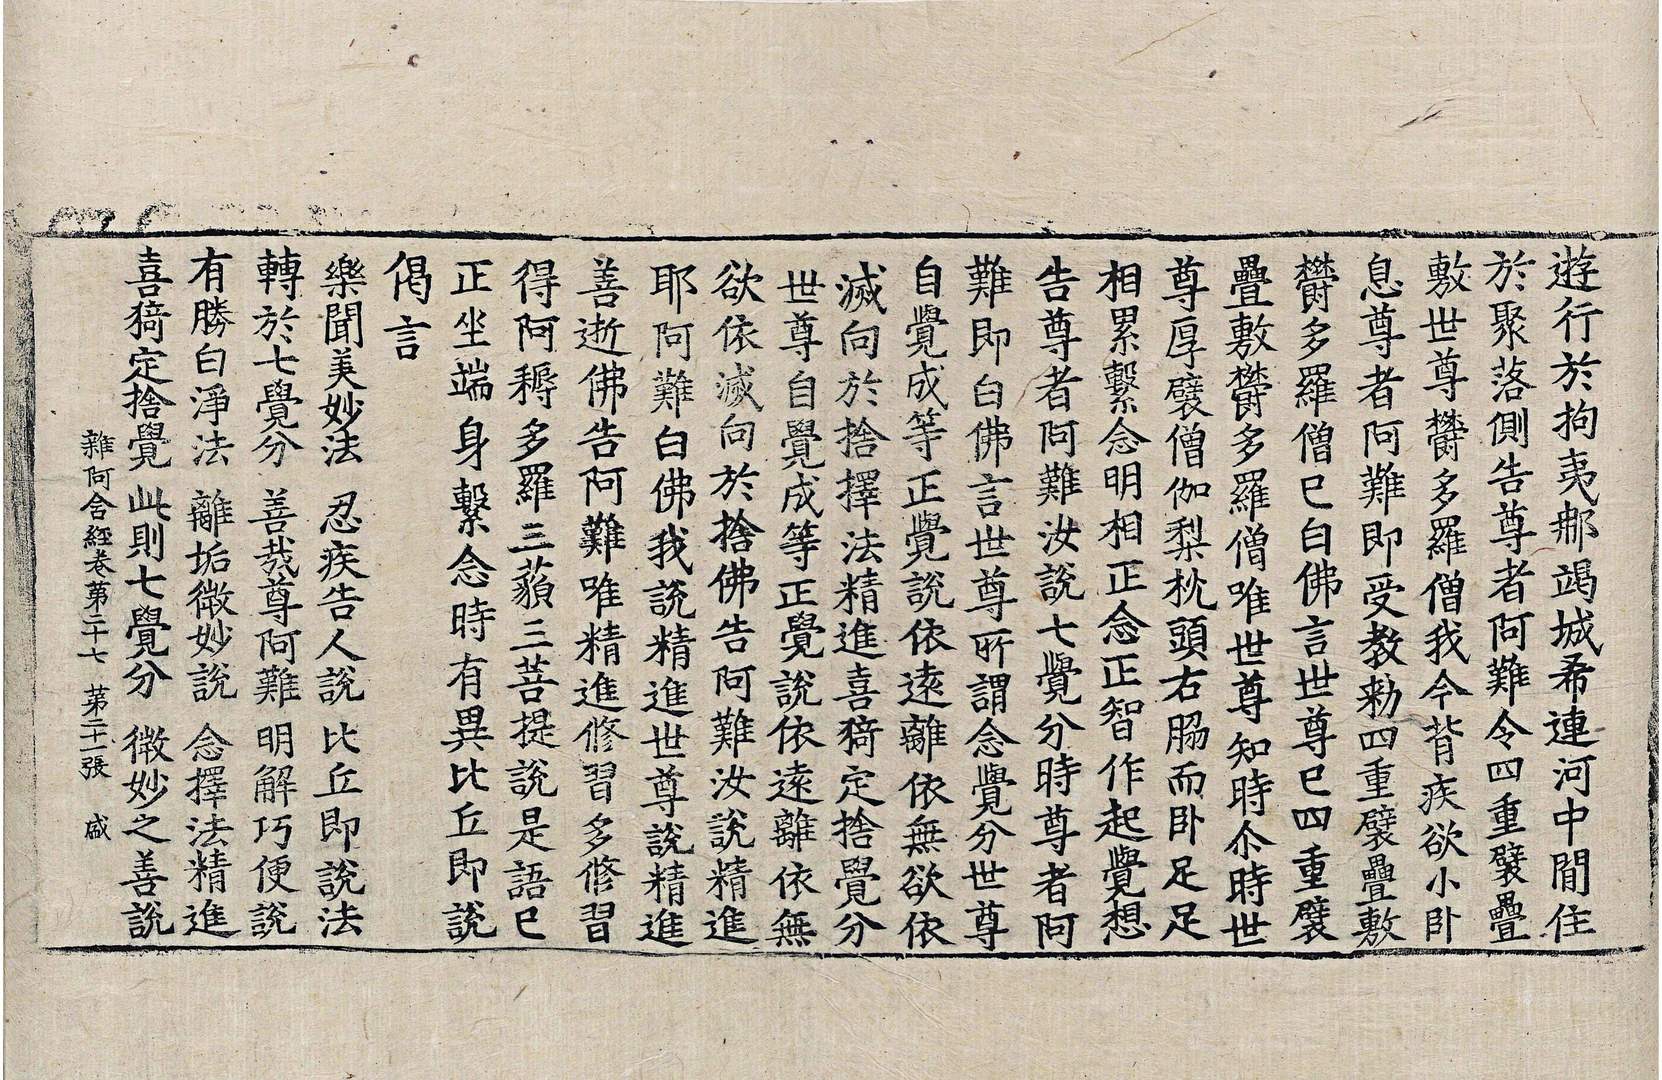 遊行於拘夷䣛竭城希連河中間住
於聚落側告尊者阿難令四重襞疊
敷世尊欝多羅僧我今背疾欲小卧
息尊者阿難即受教勑四重襞疊敷
欝多羅僧已白佛言世尊已四重襞
疊敷欝多羅僧唯世尊知時尒時世
尊厚襞僧伽梨枕頭右脇而卧足足
相累繫念明相正念正智作起覺想
告尊者阿難汝說七覺分時尊者阿
難即白佛言世尊所謂念覺分世尊
自覺成等正覺說依遠離依無欲依
滅向於捨擇法精進喜猗定捨覺分
世尊自覺成等正覺說依遠離依無
欲依滅向於捨佛告阿難汝說精進
耶阿難白佛我說精進世尊說精進
善逝佛告阿難唯精進修習多修習
得阿耨多羅三藐三菩提說是語已
正坐端身繫念時有異比丘即說
偈言
樂聞美妙法 忍疾告人說 比丘即說法
轉於七覺分 善哉尊阿難 明解巧便說
有勝白淨法 離垢微妙說 念擇法精進
喜猗定捨覺 此則七覺分 微妙之善說
雜阿含經卷第二十七 第二十一張 盛